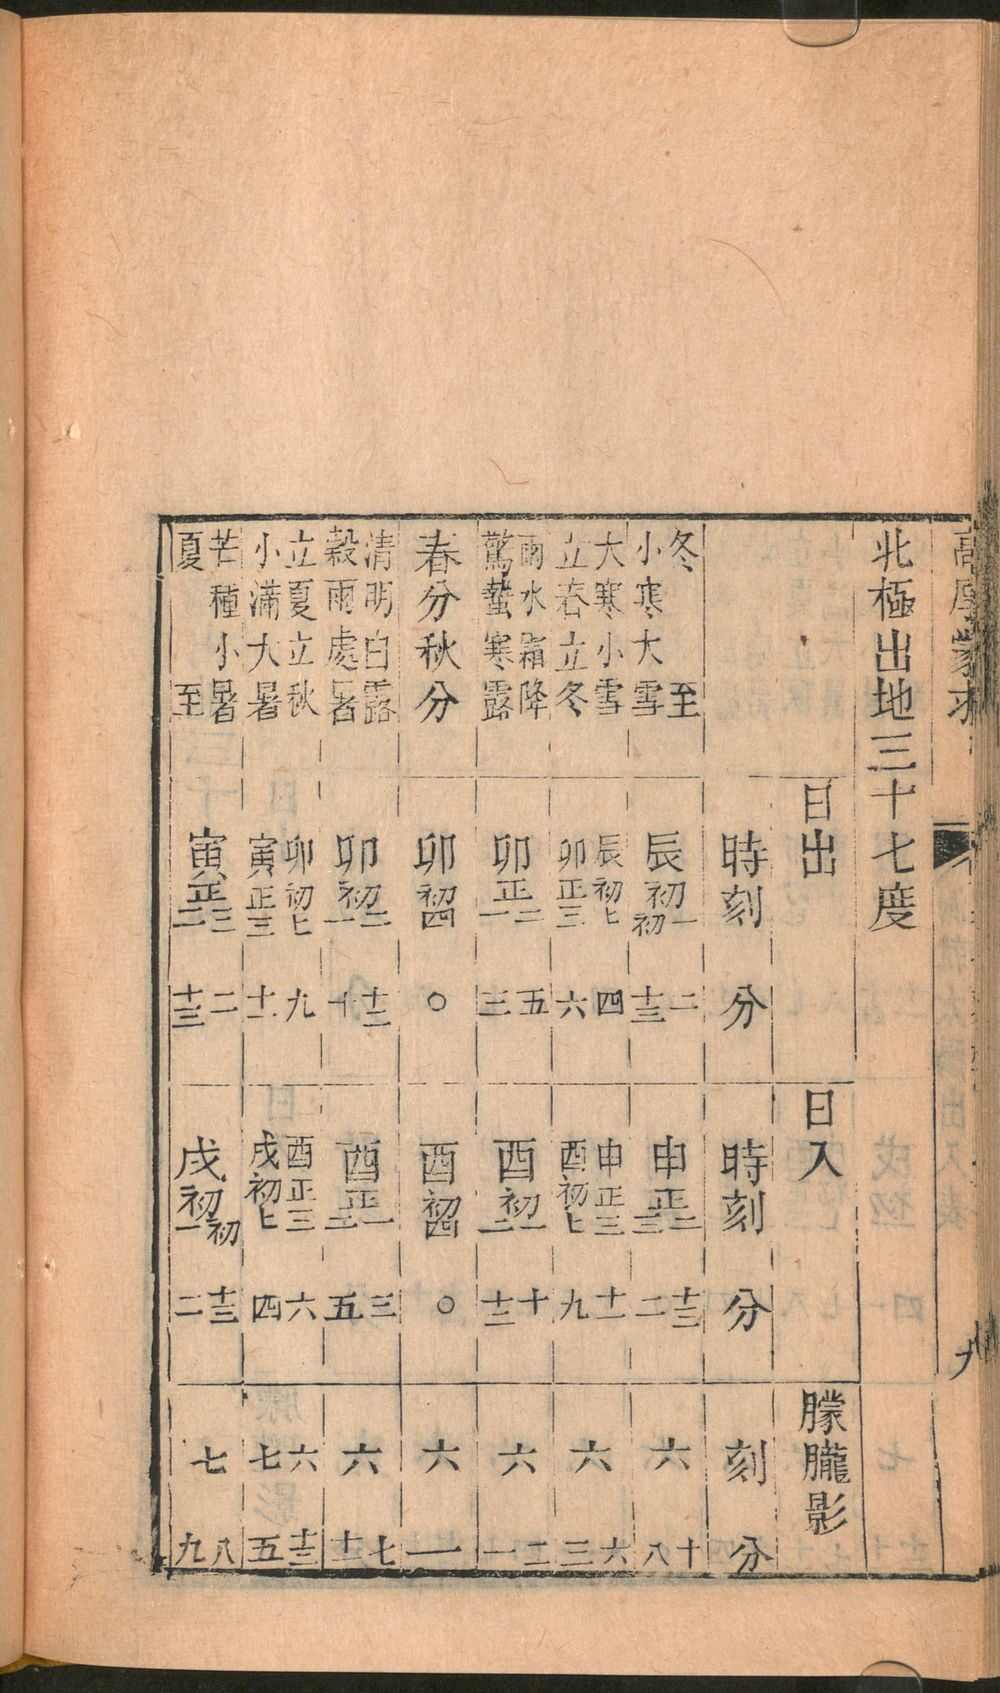 高度蒙求
九
北極出地三十七度
日出 日入 朦朧影
時刻 分 時刻 分 刻 分
冬至 辰初一 二 申正二 十三 六 十
小寒大雪 辰初初 十三 申正三 二 六 八
大寒小雪 辰初七 四 申正三 十一 六 六
立春立冬 卯正三 六 酉初七 九 六 三
雨水霜降 卯正二 五 酉初一 十 六 二
驚蟄寒露 卯正一 三 酉初二 十三 六 一
春分秋分 卯初四 〇 酉初四 〇 六 一
清明白露 卯初二 十二 酉正一 三 六 七
穀雨處暑 卯初一 十 酉正二 五 六 十一
立夏立秋 卯初七 九 酉正三 六 六 十三
小滿大暑 寅正三 十一 戌初七 四 七 五
芒種小暑 寅正三 二 戌初初 十三 七 八
夏至 寅正二 十三 戌初一 二 七 九